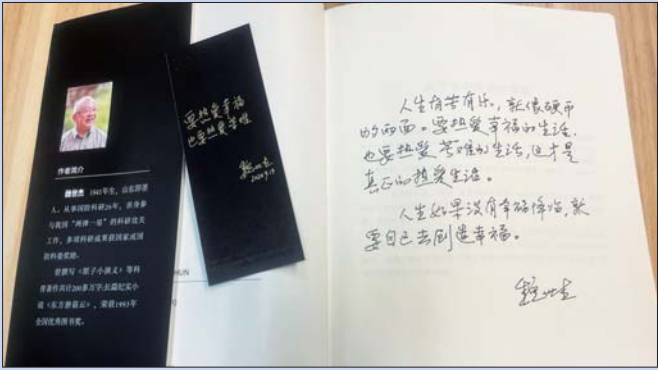 作者简介
魏世杰 1941年生，山东即墨
人，从事国防科研26年，亲身参
与我国“两弹一星”的科研攻关
工作，多项科研成果获国家或国
防科委奖励。
曾撰写《原子小演义》等科
普著作共计200多万字；长篇纪实小
说《东方蘑菇云》，荣获1993年
全国优秀图书奖。
要热爱幸福
也要热爱苦难
魏世杰
人生有苦有乐，就像硬币
的两面。要热爱幸福的生活，
也要热爱苦难的生活，这才是
真正的热爱生活。
人生如果没有幸福降临，就
要自己去创造幸福。
魏世杰